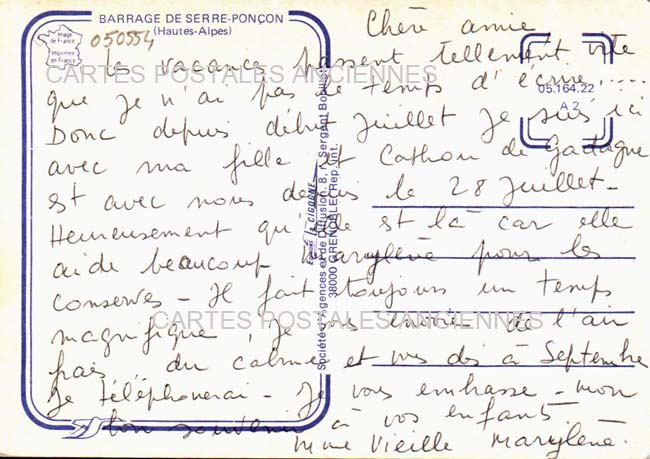 BARRAGE DE SERRE-PONÇON
(Hautes-Alpes)
Image de France
Imprimée en France
050554
05.164.22
A 2
Chère amie
la vacance passent tellement vite
que je n'ai pas le temps d'écrire.....
Donc depuis début Juillet je suis ici
avec ma fille et Cathou de Gadagne
est avec nous depuis le 28 Juillet -
Heureusement qu'elle est là car elle
aide beaucoup Marylène pour les
conserves - Il fait toujours un temps
magnifique, je vous envoie de l'air
frais du calme et vous dis à Septembre
Je téléphonerai - Je vous embrasse - mon
bon souvenir à vos enfants
Mme Vieille Marylène.
Editions la CIGOGNE
Société: Agences et de Diffusion, 8, r. Sergent Bobillot
38000 GRENOBLE (Rep. Int.)
CARTES POSTALES ANCIENNES
CARTES POSTALES ANCIENNES